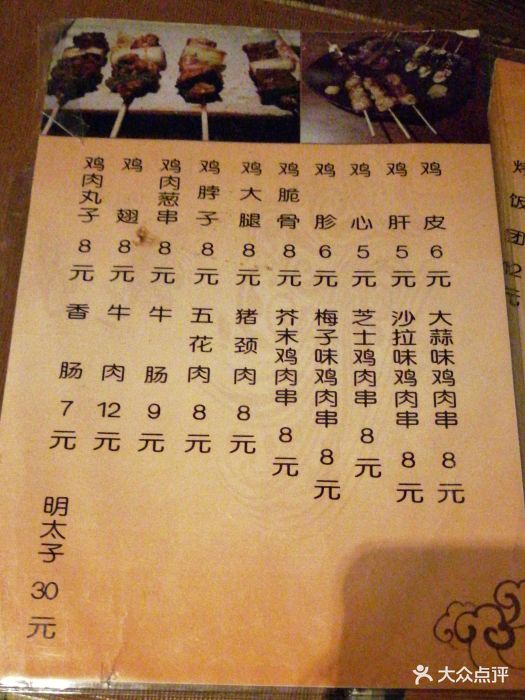 鸡皮 6元
鸡肝 5元
鸡心 5元
鸡胗 6元
鸡脆骨 8元
鸡大腿 8元
鸡脖子 8元
鸡肉葱串 8元
鸡翅 8元
鸡肉丸子 8元
大蒜味鸡肉串 8元
沙拉味鸡肉串 8元
芝士鸡肉串 8元
梅子味鸡肉串 8元
芥末鸡肉串 8元
猪颈肉 8元
五花肉 8元
牛肠 9元
牛肉 12元
香肠 7元
明太子 30元
饭团 12元
大众点评